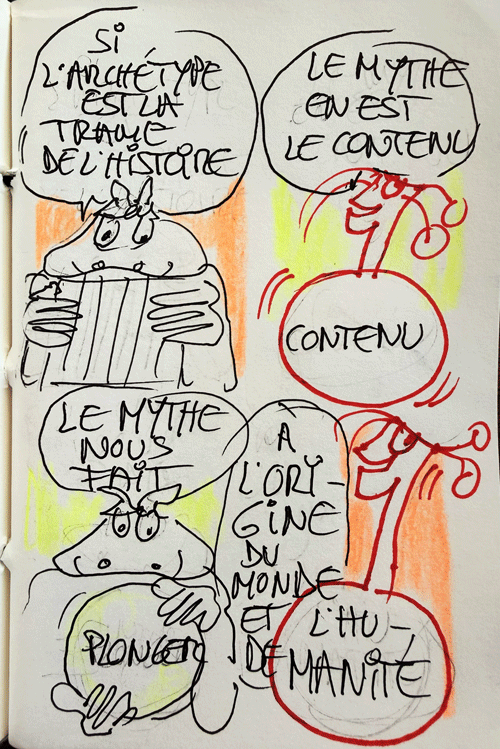 SI
L'ARCHÉTYPE
EST LA
TRAME
DE L'HISTOIRE
LE MYTHE
EN EST
LE CONTENU
CONTENU
LE MYTHE
NOUS
FAIT
PLONGER
A
L'ORI-
GINE
DU
MONDE
ET
DE
L'HU-
MANITE